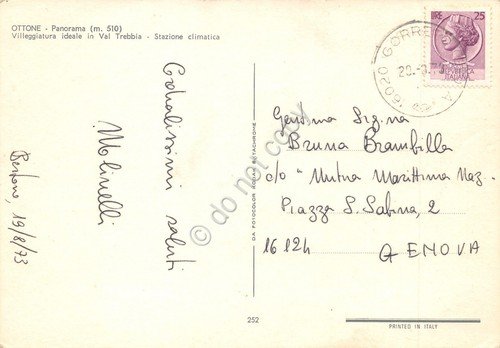 OTTONE - Panorama (m. 510)
Villeggiatura ideale in Val Trebbia - Stazione climatica
Cordialissimi saluti
Molinelli
19/8/73
DA FOTOCOLOR KODAK EKTACHROME
252
LIRE 25
REPUBBLICA
ITALIANA
16020 GORRETO
20.8.73
Gent.ma Sig.na
Bruna Brambilla
c/o "Mutua Marittima Naz.
Piazza S. Sabina, 2
16124 GENOVA
PRINTED IN ITALY
© do not copy